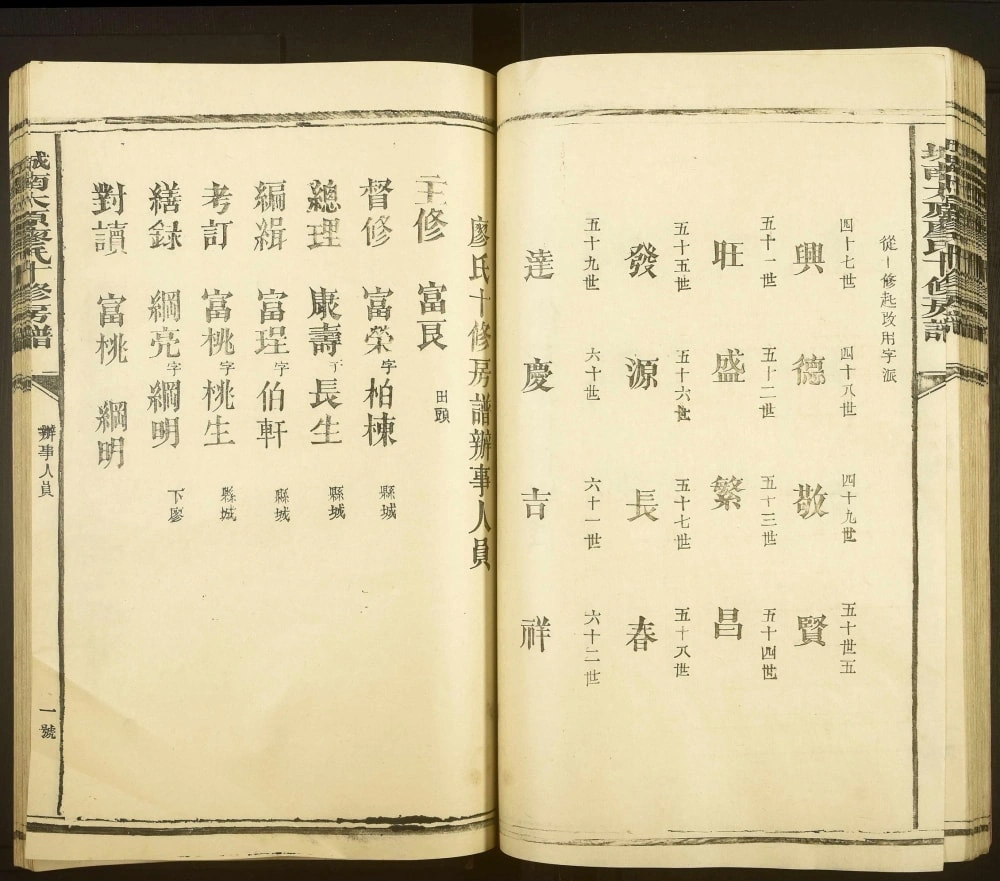 從一修起改用字派
四十七世 四十八世 四十九世 五十世五
興德敬賢
五十一世 五十二世 五十三世 五十四世
旺盛繁昌
五十五世 五十六世 五十七世 五十八世
發源長春
五十九世 六十世 六十一世 六十二世
達慶吉祥
廖氏十修房譜辦事人員
主修 富艮 田頭
督修 富榮字柏棟 縣城
總理 康壽字長生 縣城
編緝 富珵字伯軒 縣城
考訂 富桃字桃生 縣城
繕録 綱亮字綱明 下廖
對讀 富桃 綱明
城南太原廖氏十修房譜
辦事人員
一號